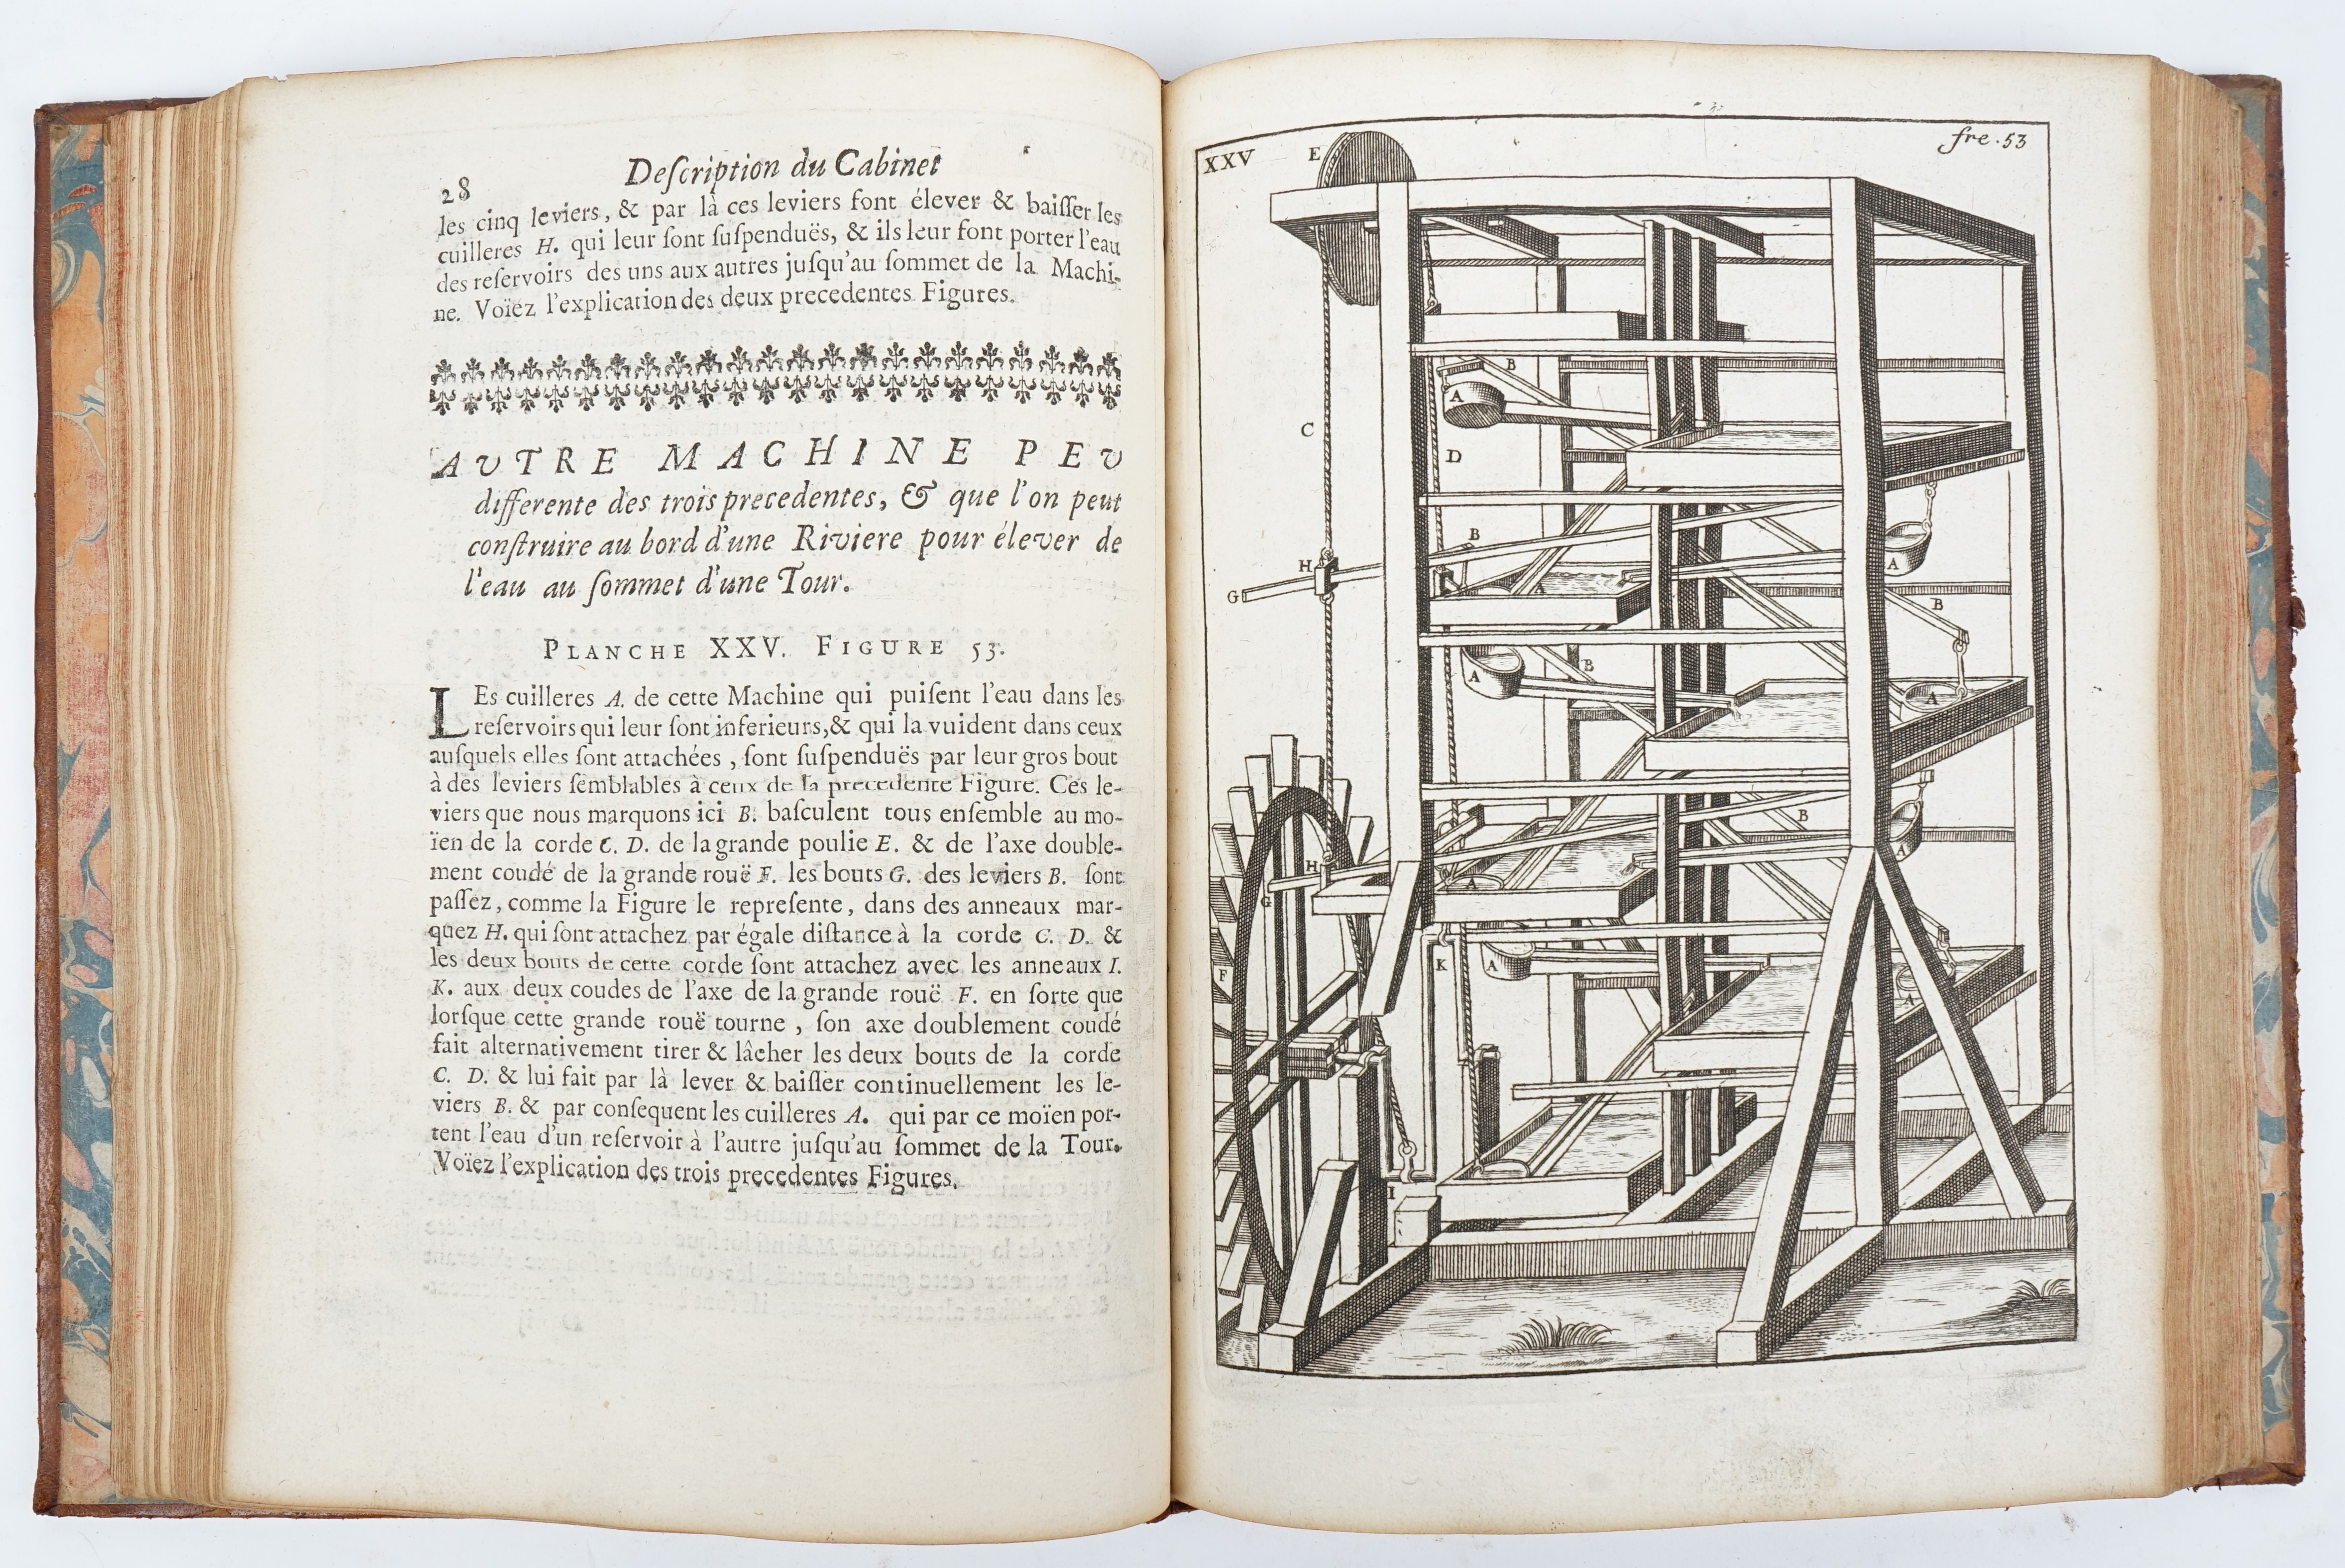 28
Deſcription du Cabinet
les cinq leviers, & par là ces leviers font élever & baiſſer les
cuilleres H. qui leur ſont ſuſpenduës, & ils leur font porter l'eau
des reſervoirs des uns aux autres juſqu'au ſommet de la Machi-
ne. Voïez l'explication des deux precedentes Figures.
AVTRE MACHINE PEV
differente des trois precedentes, & que l'on peut
conſtruire au bord d'une Riviere pour élever de
l'eau au ſommet d'une Tour.
PLANCHE XXV. FIGURE 53.
LEs cuilleres A. de cette Machine qui puiſent l'eau dans les
reſervoirs qui leur ſont inferieurs, & qui la vuident dans ceux
auſquels elles ſont attachées, ſont ſuſpenduës par leur gros bout
à des leviers ſemblables à ceux de la precedente Figure. Ces le-
viers que nous marquons ici B. baſculent tous enſemble au mo-
ïen de la corde C. D. de la grande poulie E. & de l'axe double-
ment coudé de la grande rouë F. les bouts G. des leviers B. ſont
paſſez, comme la Figure le repreſente, dans des anneaux mar-
quez H. qui ſont attachez par égale diſtance à la corde C. D. &
les deux bouts de cette corde ſont attachez avec les anneaux I.
K. aux deux coudes de l'axe de la grande rouë F. en ſorte que
lorſque cette grande rouë tourne, ſon axe doublement coudé
fait alternativement tirer & lâcher les deux bouts de la corde
C. D. & lui fait par là lever & baiſſer continuellement les le-
viers B. & par conſequent les cuilleres A. qui par ce moïen por-
tent l'eau d'un reſervoir à l'autre juſqu'au ſommet de la Tour.
Voïez l'explication des trois precedentes Figures.
XXV
E
fre. 53
B
A
C
D
B
H
A
A
G
B
B
A
A
B
H
A
A
G
K
A
F
A
I